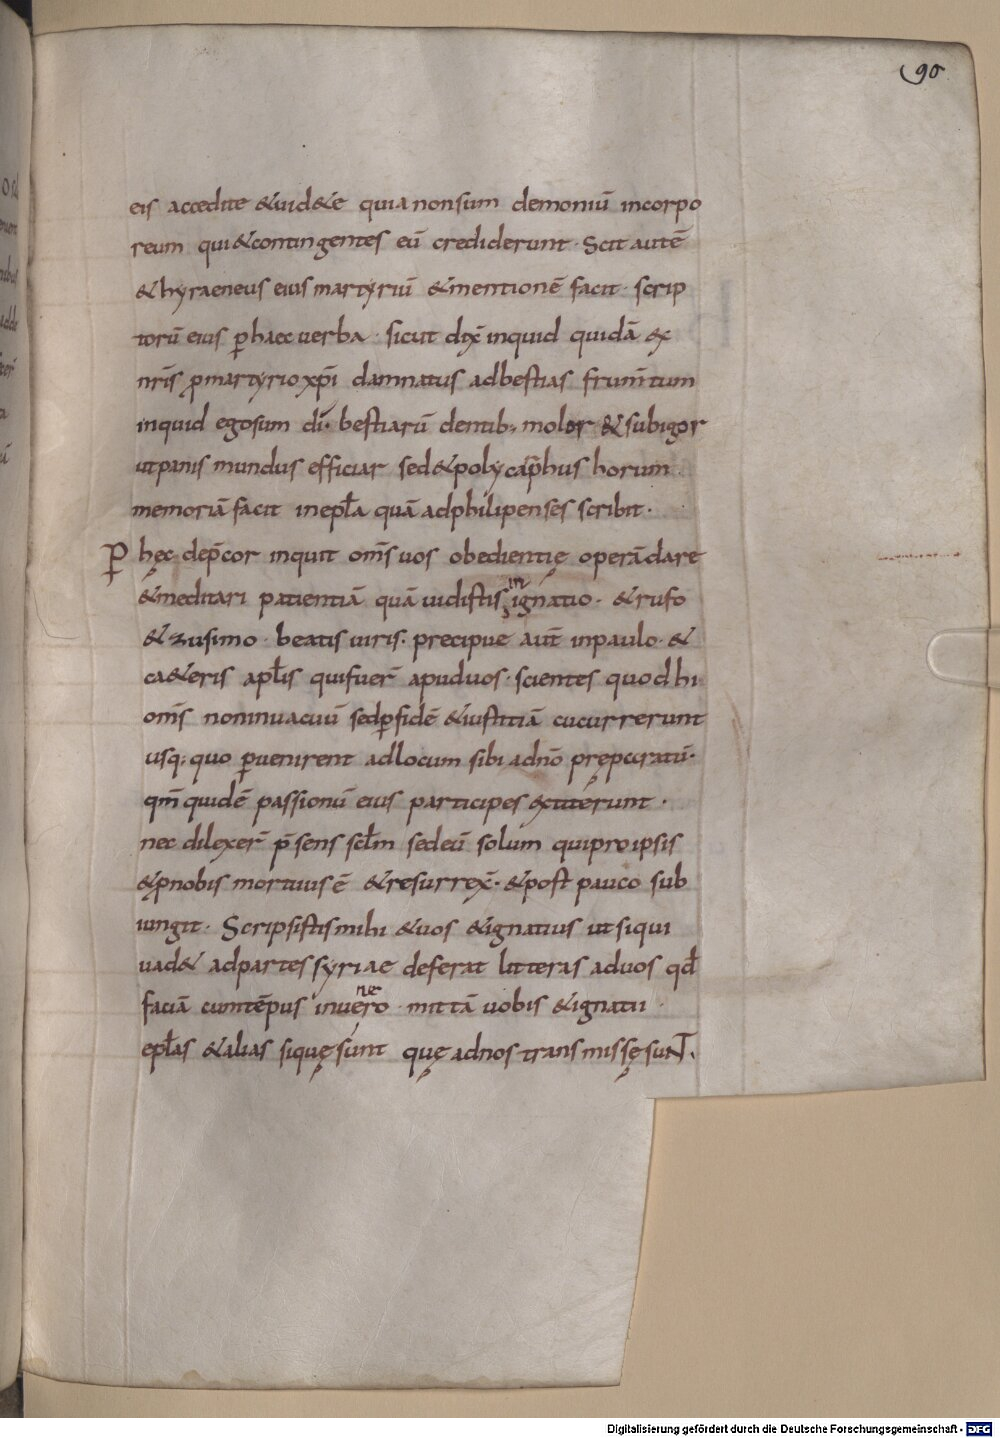 90
eis accedite &uid&e quia non sum demoniū incorpo
reum qui &contingentes eū crediderunt · Scit autē
&hyraeneus eius martyriū &mentionē facit · scrip
torū eius ꝑ haec uerba · sicut dix̄ inquid quidā ex
nr̄is ꝓ martyrio xp̄i damnatus ad bestias frum̄tum
inquid ego sum dī · bestiarū dentib; molor &subigor
ut panis mundus efficiar sed &polycarphus horum
memoriā facit in epl̄a quā ad philipenses scribit ·
Ꝑ hęc dep̄cor inquit om̄s uos obedientię operā dare
&meditari patientiā quā uidistis in ignatio · &rufo
&zusimo · beatis uiris · precipue aut̄ in paulo · &
ca&eris apl̄is qui fuer̄ apud uos · scientes quod hi
om̄s non in uacuū sed ꝑ fidē &iustitiā cucurrerunt
usq; quo ꝑuenirent ad locum sibi a dn̄o pręparatū ·
qm̄ quidē passionū eius participes extiterunt ·
nec dilexer̄ p̄sens scl̄m sed eū solum qui pro ipsis
&ꝓ nobis mortuus ē &resurrex̄ · &post pauco sub
iungit · Scripsistis mihi &uos &ignatius ut si qui
uad& ad partes syriae deferat litteras ad uos qd̄
faciā cum tēpus inuenero · mittā uobis &ignatii ·
epl̄as &alias si quę sunt quę ad nos transmissę sunt ·
Digitalisierung gefördert durch die Deutsche Forschungsgemeinschaft - DFG